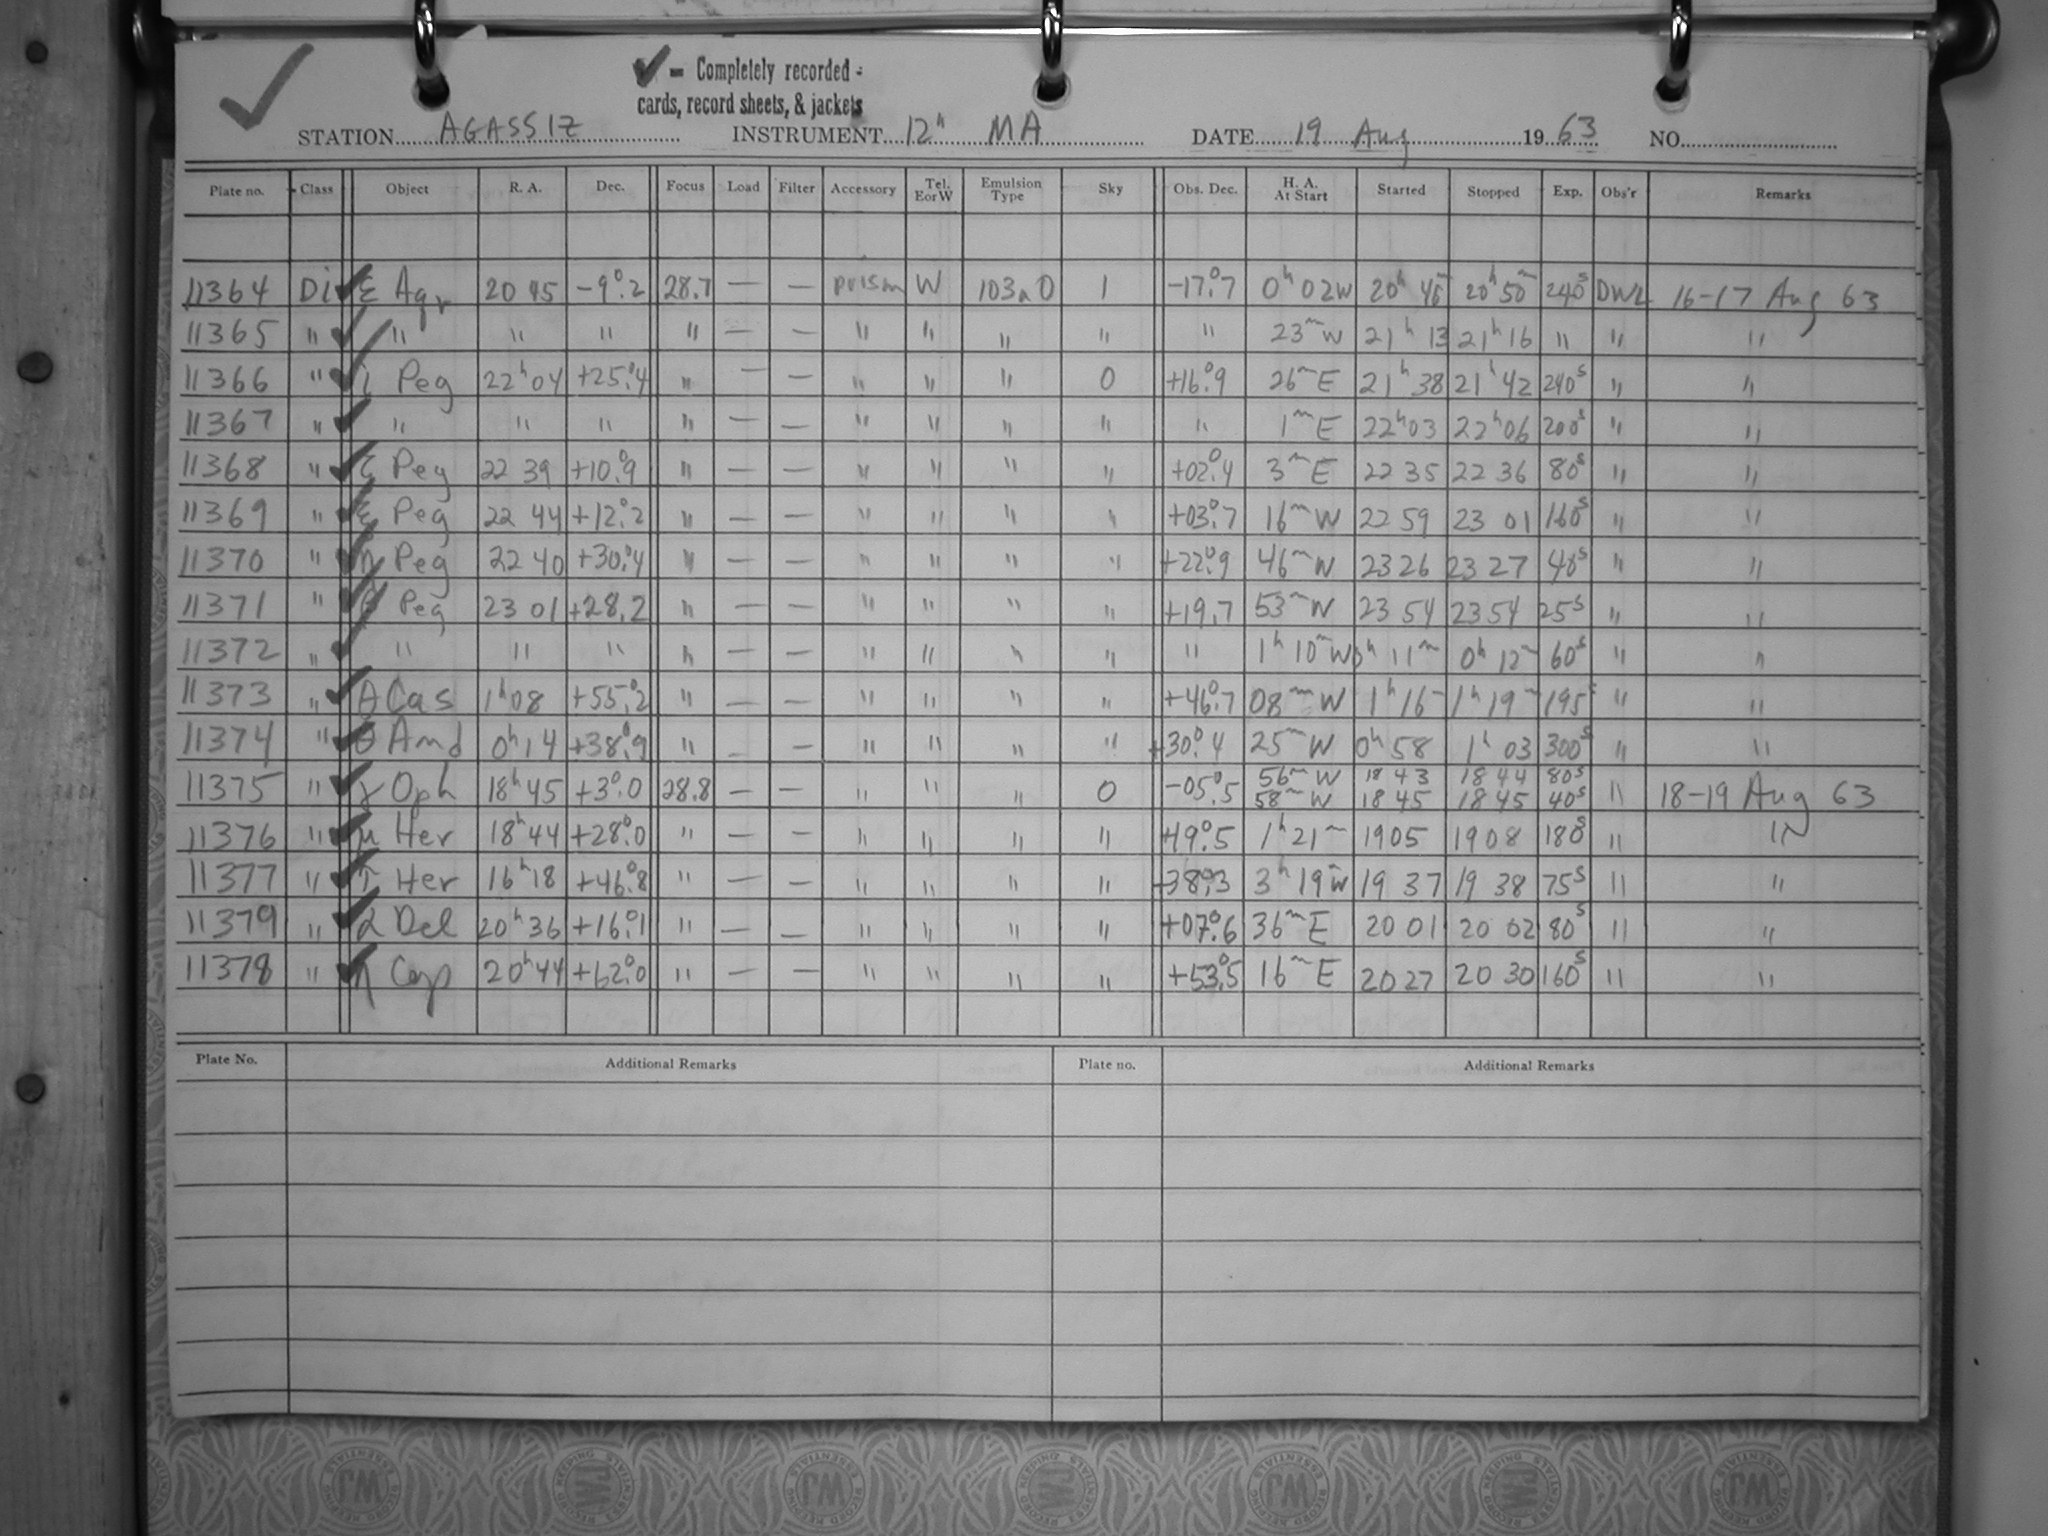 ✓ = Completely recorded -
cards, record sheets, & jackets
STATION AGASSIZ INSTRUMENT 12" MA DATE 19 Aug 1963 NO.
Plate no. Class Object R. A. Dec. Focus Load Filter Accessory Tel. EorW Emulsion Type Sky Obs. Dec. H. A. At Start Started Stopped Exp. Obs'r Remarks
11364 Di ε Aqr 20 45 -9°.2 28.7 — — prism W 103aO 1 -17°.7 0h 02W 20h 46m 20h 50m 240s DWL 16-17 Aug 63
11365 " " " " " — — " " " " " 23m W 21h 13 21h 16 " " "
11366 " ι Peg 22h 04 +25°.4 " — — " " " 0 +16°.9 26m E 21h 38 21h 42 240s " "
11367 " " " " " — — " " " " " 1m E 22h 03 22h 06 200s " "
11368 " ζ Peg 22 39 +10°.9 " — — " " " " +02°.4 3m E 22 35 22 36 80s " "
11369 " ξ Peg 22 44 +12°.2 " — — " " " " +03°.7 16m W 22 59 23 01 160s " "
11370 " η Peg 22 40 +30°.4 " — — " " " " +22°.9 46m W 23 26 23 27 40s " "
11371 " β Peg 23 01 +28.2 " — — " " " " +19.7 53m W 23 54 23 54 25s " "
11372 " " " " " — — " " " " " 1h 10m W 0h 11m 0h 12m 60s " "
11373 " θ Cas 1h 08 +55°.2 " — — " " " " +46°.7 08m W 1h 16m 1h 19m 195s " "
11374 " θ And 0h 14 +38°.9 " — — " " " " +30°.4 25m W 0h 58 1h 03 300s " "
11375 " γ Oph 18h 45 +3°.0 28.8 — — " " " 0 -05°.5 56m W 18 43 18 44 80s " 18-19 Aug 63
58m W 18 45 18 45 40s
11376 " μ Her 18h 44 +28°.0 " — — " " " " +19°.5 1h 21m 19 05 19 08 180s " "
11377 " τ Her 16h 18 +46°.8 " — — " " " " +38°.3 3h 19m W 19 37 19 38 75s " "
11379 " α Del 20h 36 +16°.1 " — — " " " " +07°.6 36m E 20 01 20 02 80s " "
11378 " η Cep 20h 44 +62°.0 " — — " " " " +53°.5 16m E 20 27 20 30 160s " "
Plate No. Additional Remarks Plate no. Additional Remarks